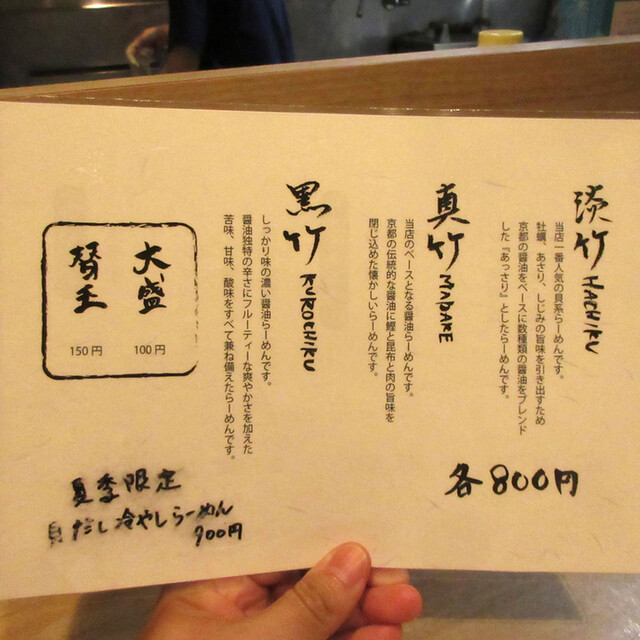 淡竹 HACHIKU
当店一番人気の貝系らーめんです。
牡蠣、あさり、しじみの旨味を引き出すため
京都の醤油をベースに数種類の醤油をブレンド
した『あっさり』としたらーめんです。
真竹 MADAKE
当店のベースとなる醤油らーめんです。
京都の伝統的な醤油に鰹と昆布と肉の旨味を
閉じ込めた懐かしいらーめんです。
各800円
黒竹 KUROCHIKU
しっかり味の濃い醤油らーめんです。
醤油独特の辛さにフルーティーな爽やかさを加えた
苦味、甘味、酸味をすべて兼ね備えたらーめんです。
大盛
100円
替玉
150円
夏季限定
貝だし冷やしらーめん
900円